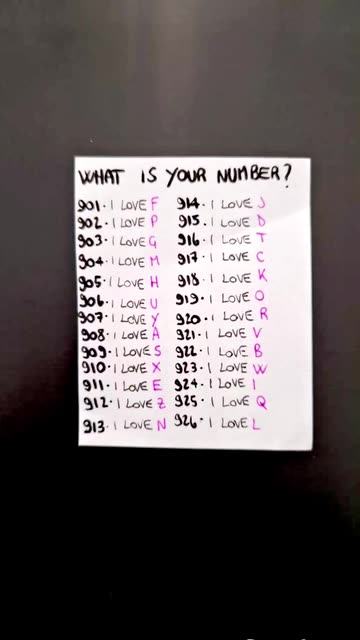 WHAT IS YOUR NUMBER?
901. I LOVE F
902. I LOVE P
903. I LOVE G
904. I LOVE M
905. I LOVE H
906. I LOVE U
907. I LOVE Y
908. I LOVE A
909. I LOVE S
910. I LOVE X
911. I LOVE E
912. I LOVE Z
913. I LOVE N
914. I LOVE J
915. I LOVE D
916. I LOVE T
917. I LOVE C
918. I LOVE K
919. I LOVE O
920. I LOVE R
921. I LOVE V
922. I LOVE B
923. I LOVE W
924. I LOVE I
925. I LOVE Q
926. I LOVE L